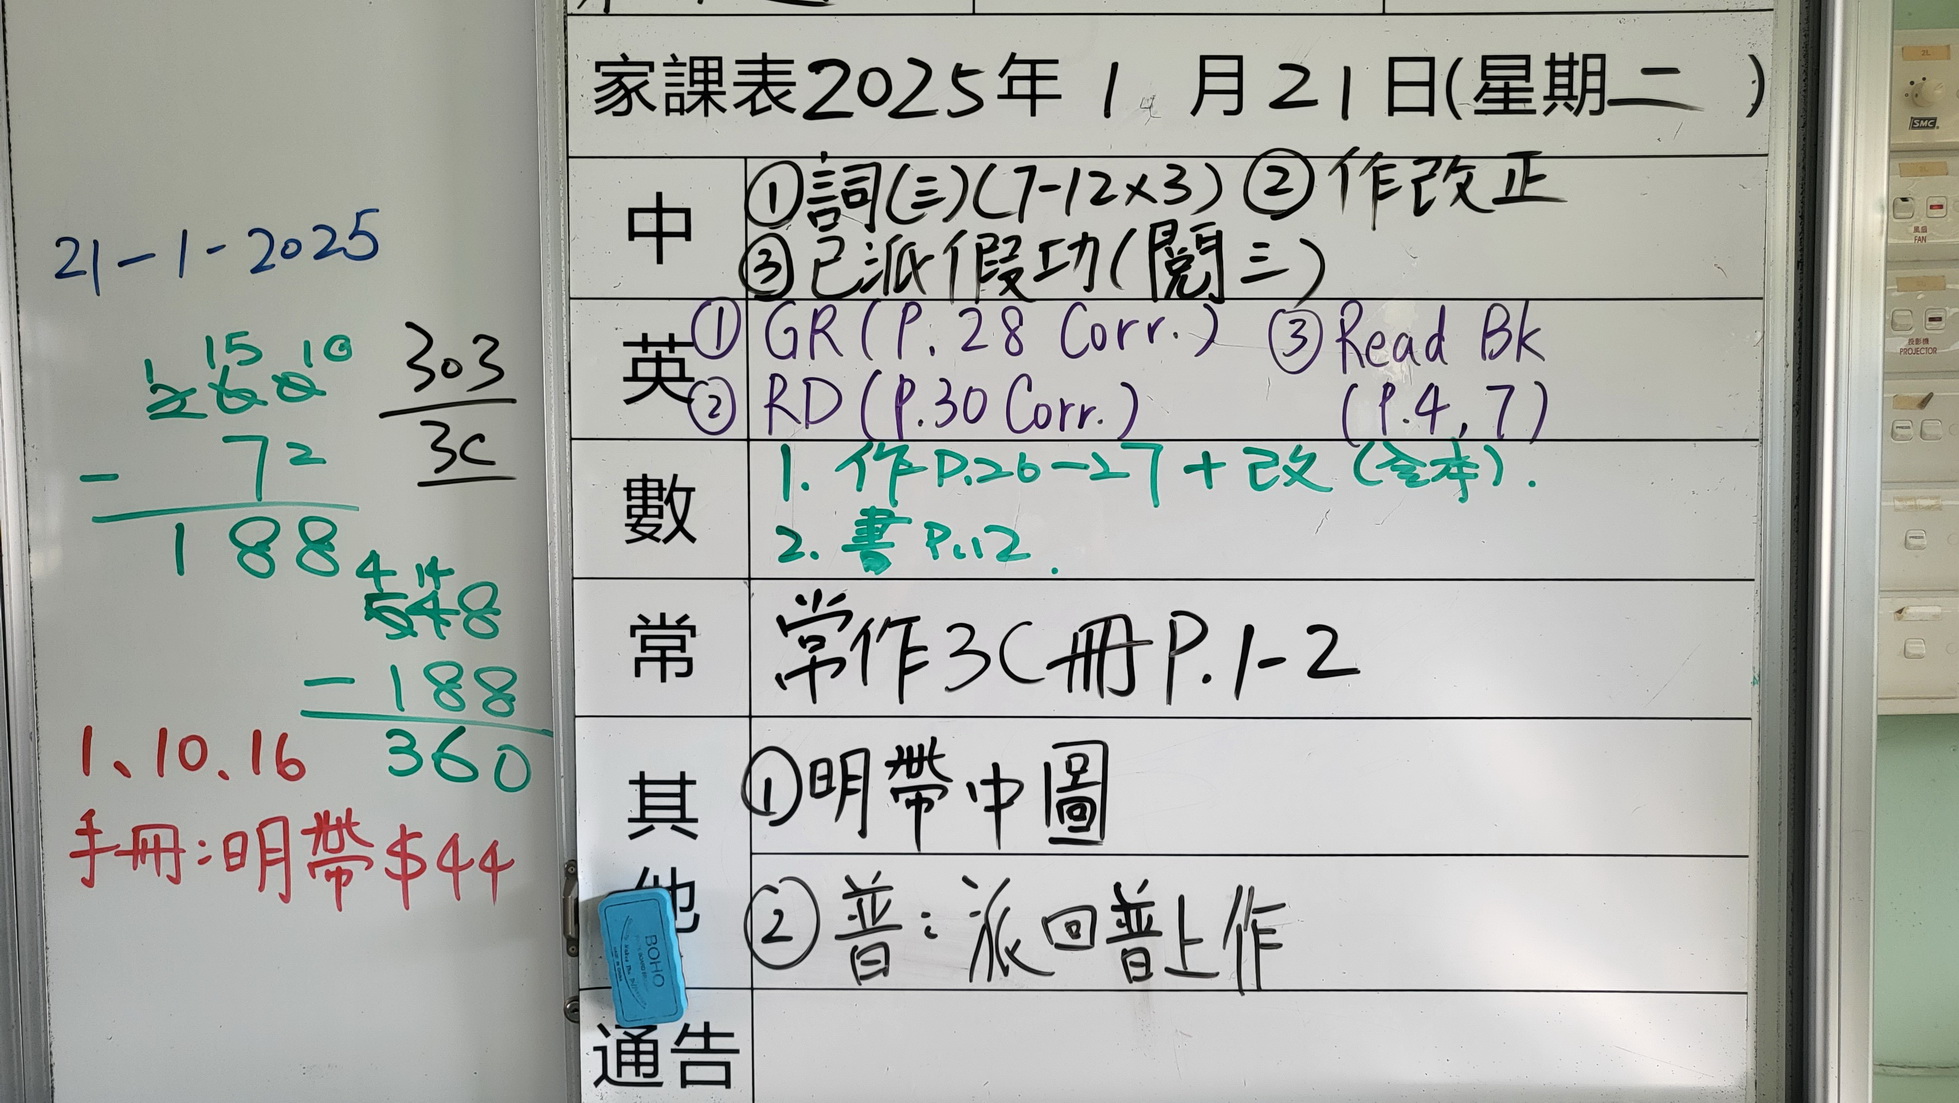 21-1-2025
1 15 10 10
260
- 72
188
303
3C
4 14
548
-188
360
1、10、16
手冊:明帶$44
家課表2025年1月21日(星期二)
中
①詞(三)(7-12×3) ②作改正
③已派假功(閱三)
英
①GR(P.28 Corr.) ③Read Bk
②RD(P.30 Corr.) (P.4,7)
數
1. 作P.26-27+改(全本).
2. 書P.12.
常
常作3C冊P.1-2
其他
①明帶中圖
②普:派回普上作
通告
BOHO
SMC
風扇
FAN
投影機
PROJECTOR